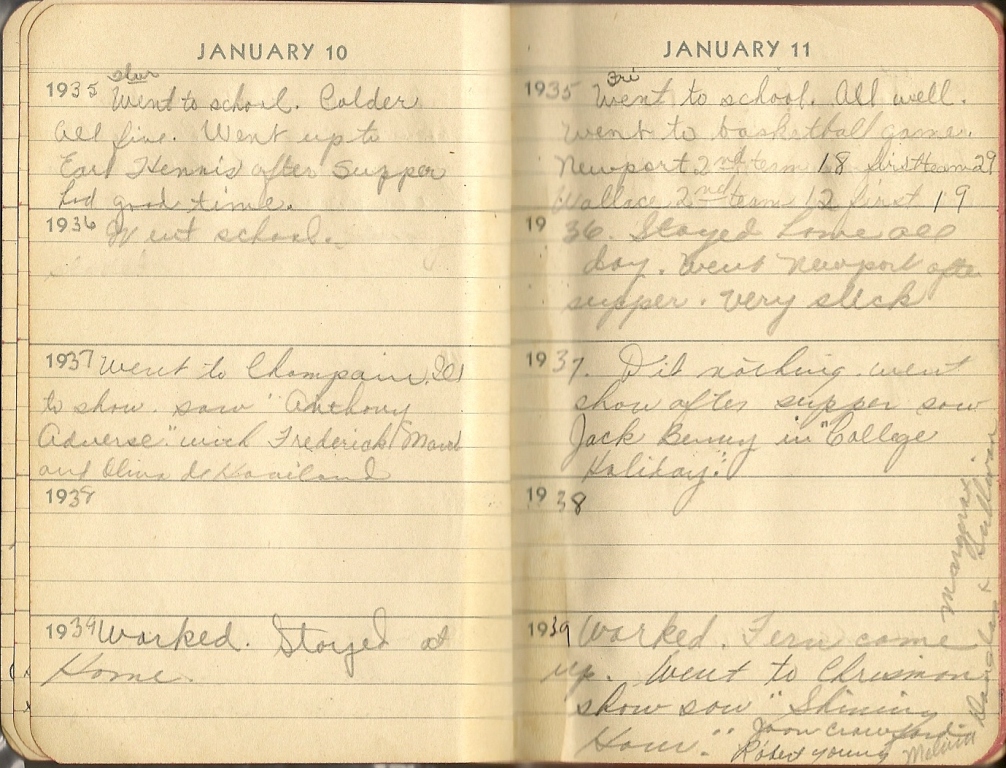 JANUARY 10
1935 Went to school. Colder
all fine. Went up to
Earl Hennis after supper
had good time.
1936 Went school.
1937 Went to Champain, Ill
to show. saw "Anthony
Adverse" with Frederick March
and Oliva de Haviland
1938
1939 Worked. Stayed at
Home.
JANUARY 11
Fri
1935 Went to school. All well.
went to basketball game.
Newport 2nd team 18 first team 29
Wallace 2nd team 12 first 19
1936. Stayed home all
day. Went Newport after
supper. Very slick
1937. Did nothing. went
show after supper saw
Jack Benny in "College
Holiday."
1938
1939 Worked. Fern came
up. Went to Chrisman
show saw "Shining
Hour." Joan Crawford
Robert Young Melvin
Douglas & Sullivan
Margaret